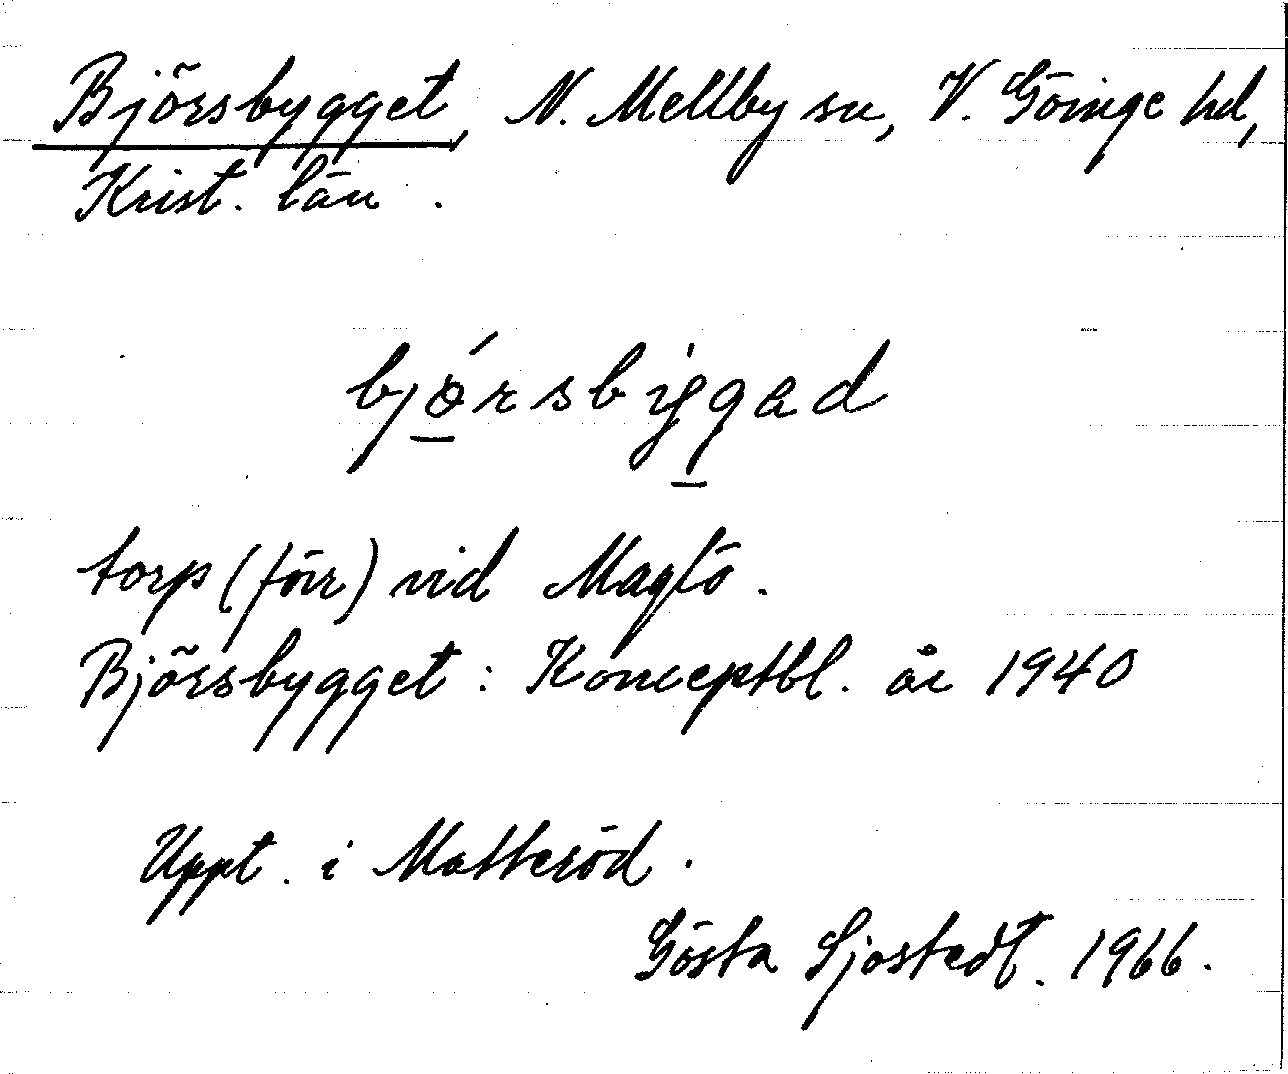 Björsbygget, N. Mellby sn, V. Göinge hd,
Krist. län.
bjǿrsbyggad
torp (förr) vid Maglö.
Björsbygget: Konceptbl. år 1940
Uppt. i Matteröd.
Gösta Sjöstedt. 1966.